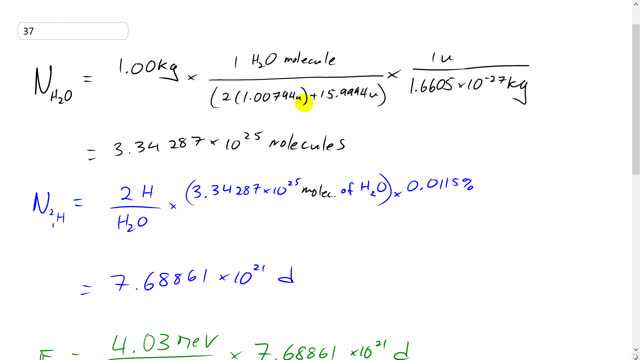 37
N_H₂O = 1.00kg × 1 H₂O molecule / (2(1.00794u)+15.9994u) × 1u / 1.6605×10⁻²⁷kg
= 3.34287×10²⁵ molecules
N_²₁H = 2 H / H₂O × (3.34287×10²⁵ molec. of H₂O) × 0.0115%
= 7.68861 ×10²¹ d
= 4.03 MeV × 7.68861 ×10²¹ d